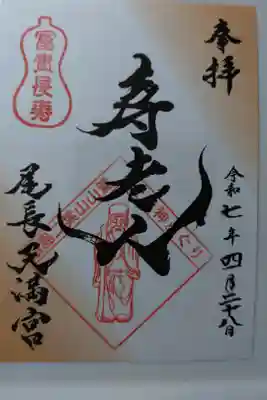 奉拝
令和七年四月二十八日
寿老人
富貴長寿
尾長天満宮